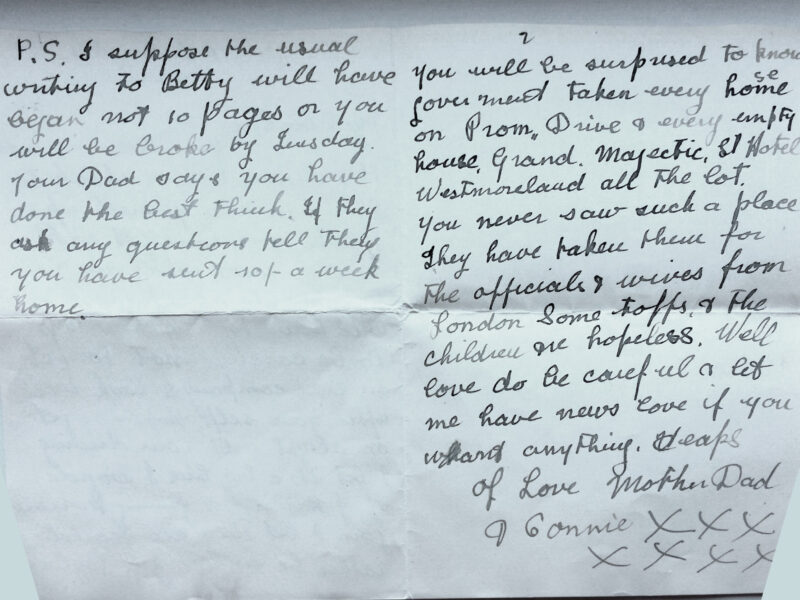 P.S. I suppose the usual
writing to Betty will have
began not 10 pages or you
will be broke by Tuesday.
Your Dad says you have
done the best think. If they
ask any questions tell they
you have sent 10/- a week
home.
2
You will be surprised to know
goverment taken every home se
on Prom,, Drive & every empty
house, Grand. Majectic, St Hotel
Westmoreland all the lot.
You never saw such a place
They have taken them for
the officials & wives from
London Some toffs, & the
children are hopeless. Well
love do be careful & let
me have news love if you
want anything. Heaps
of Love Mother Dad
& Connie X X X
X X X X